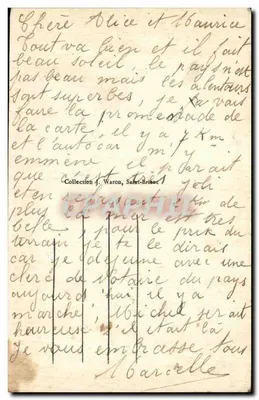 Chère Alice et Maurice
Tout va bien et il fait
beau soleil, le pays n'est
pas beau mais les alentours
sont superbes, je vais
faire la promenade de
la carte, il y a 7 Km
et l'autocar m'y
emmène il parait
que c'est très joli
Collection J. Waron, Saint-Brieuc
et en
plus la mer est très
belle, pour le prix du
terrain je te le dirais
car je déjeune avec une
clerc de notaire du pays
aujourd'hui il y a
marché, Michel serait
heureuse s'il était là
Je vous embrasse tous
Marcelle